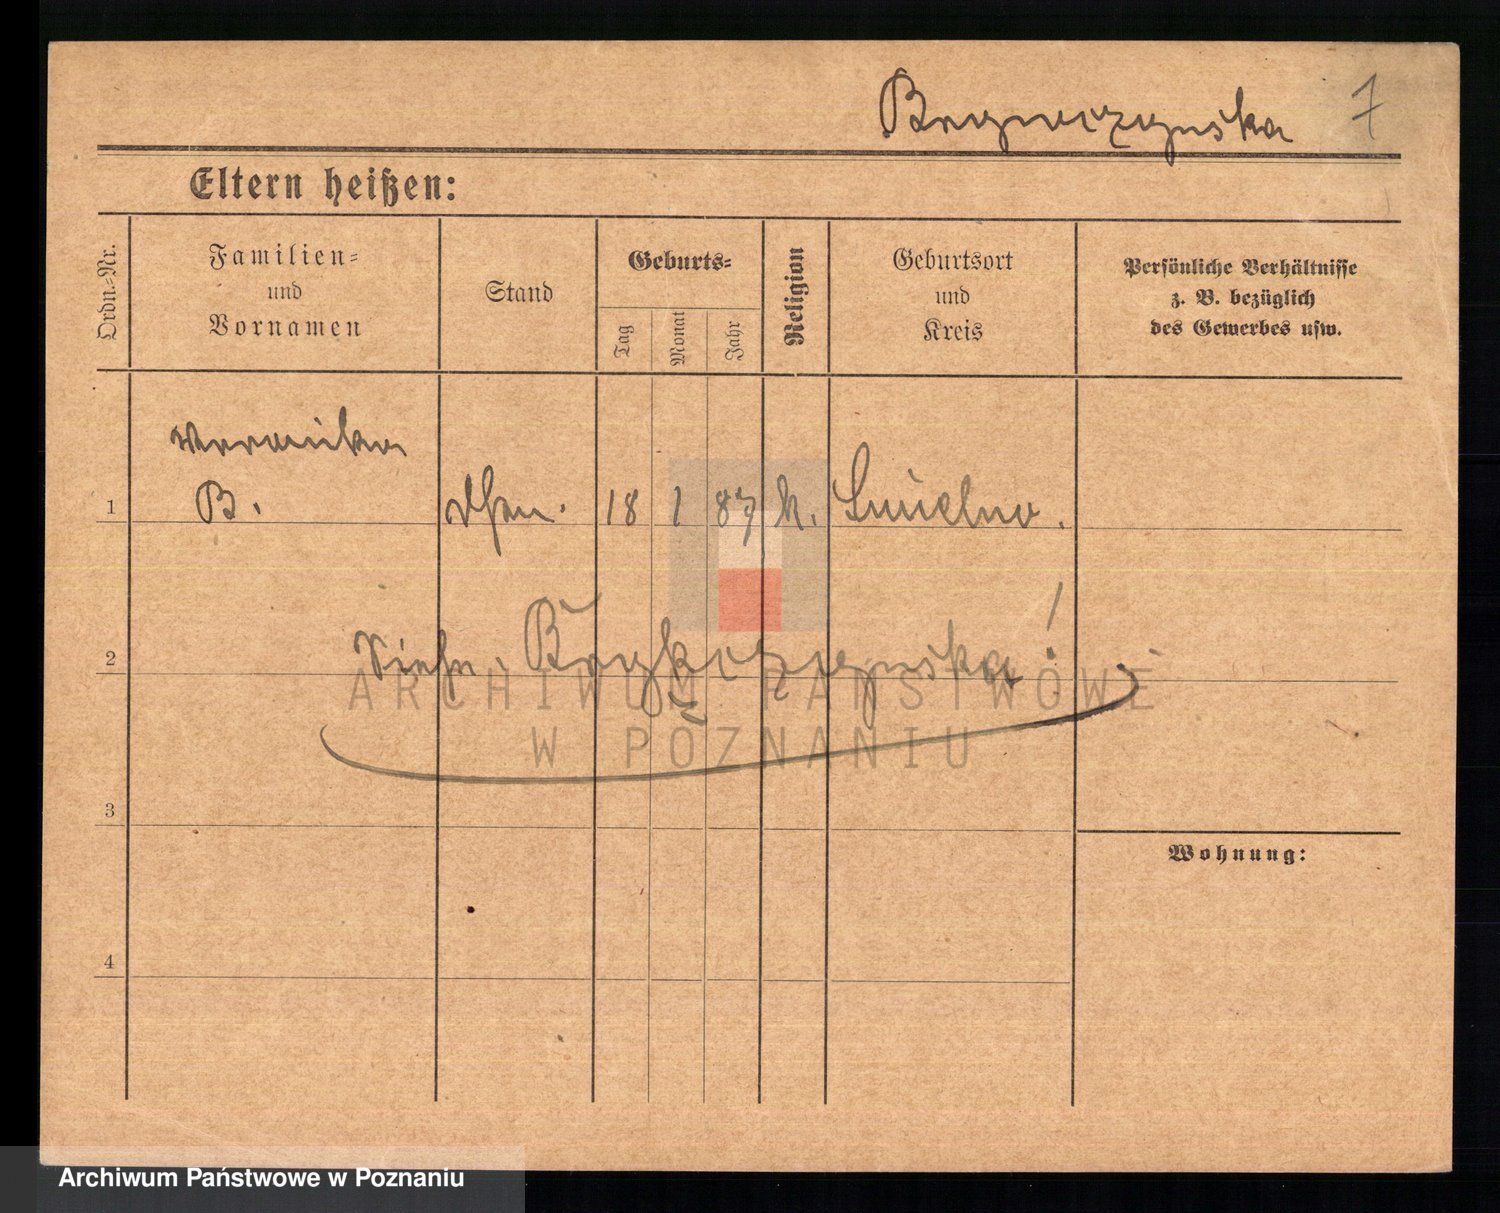 7
Eltern heißen:
Ordn.-Nr.
Familien-
und
Vornamen
Stand
Geburts-
Tag
Monat
Jahr
Religion
Geburtsort
und
Kreis
Persönliche Verhältnisse
z. B. bezüglich
des Gewerbes usw.
Veronika
1 B. 18 1 87 k.
2 Siehe
3
Wohnung:
4
ARCHIWUM PAŃSTWOWE
W POZNANIU
Archiwum Państwowe w Poznaniu